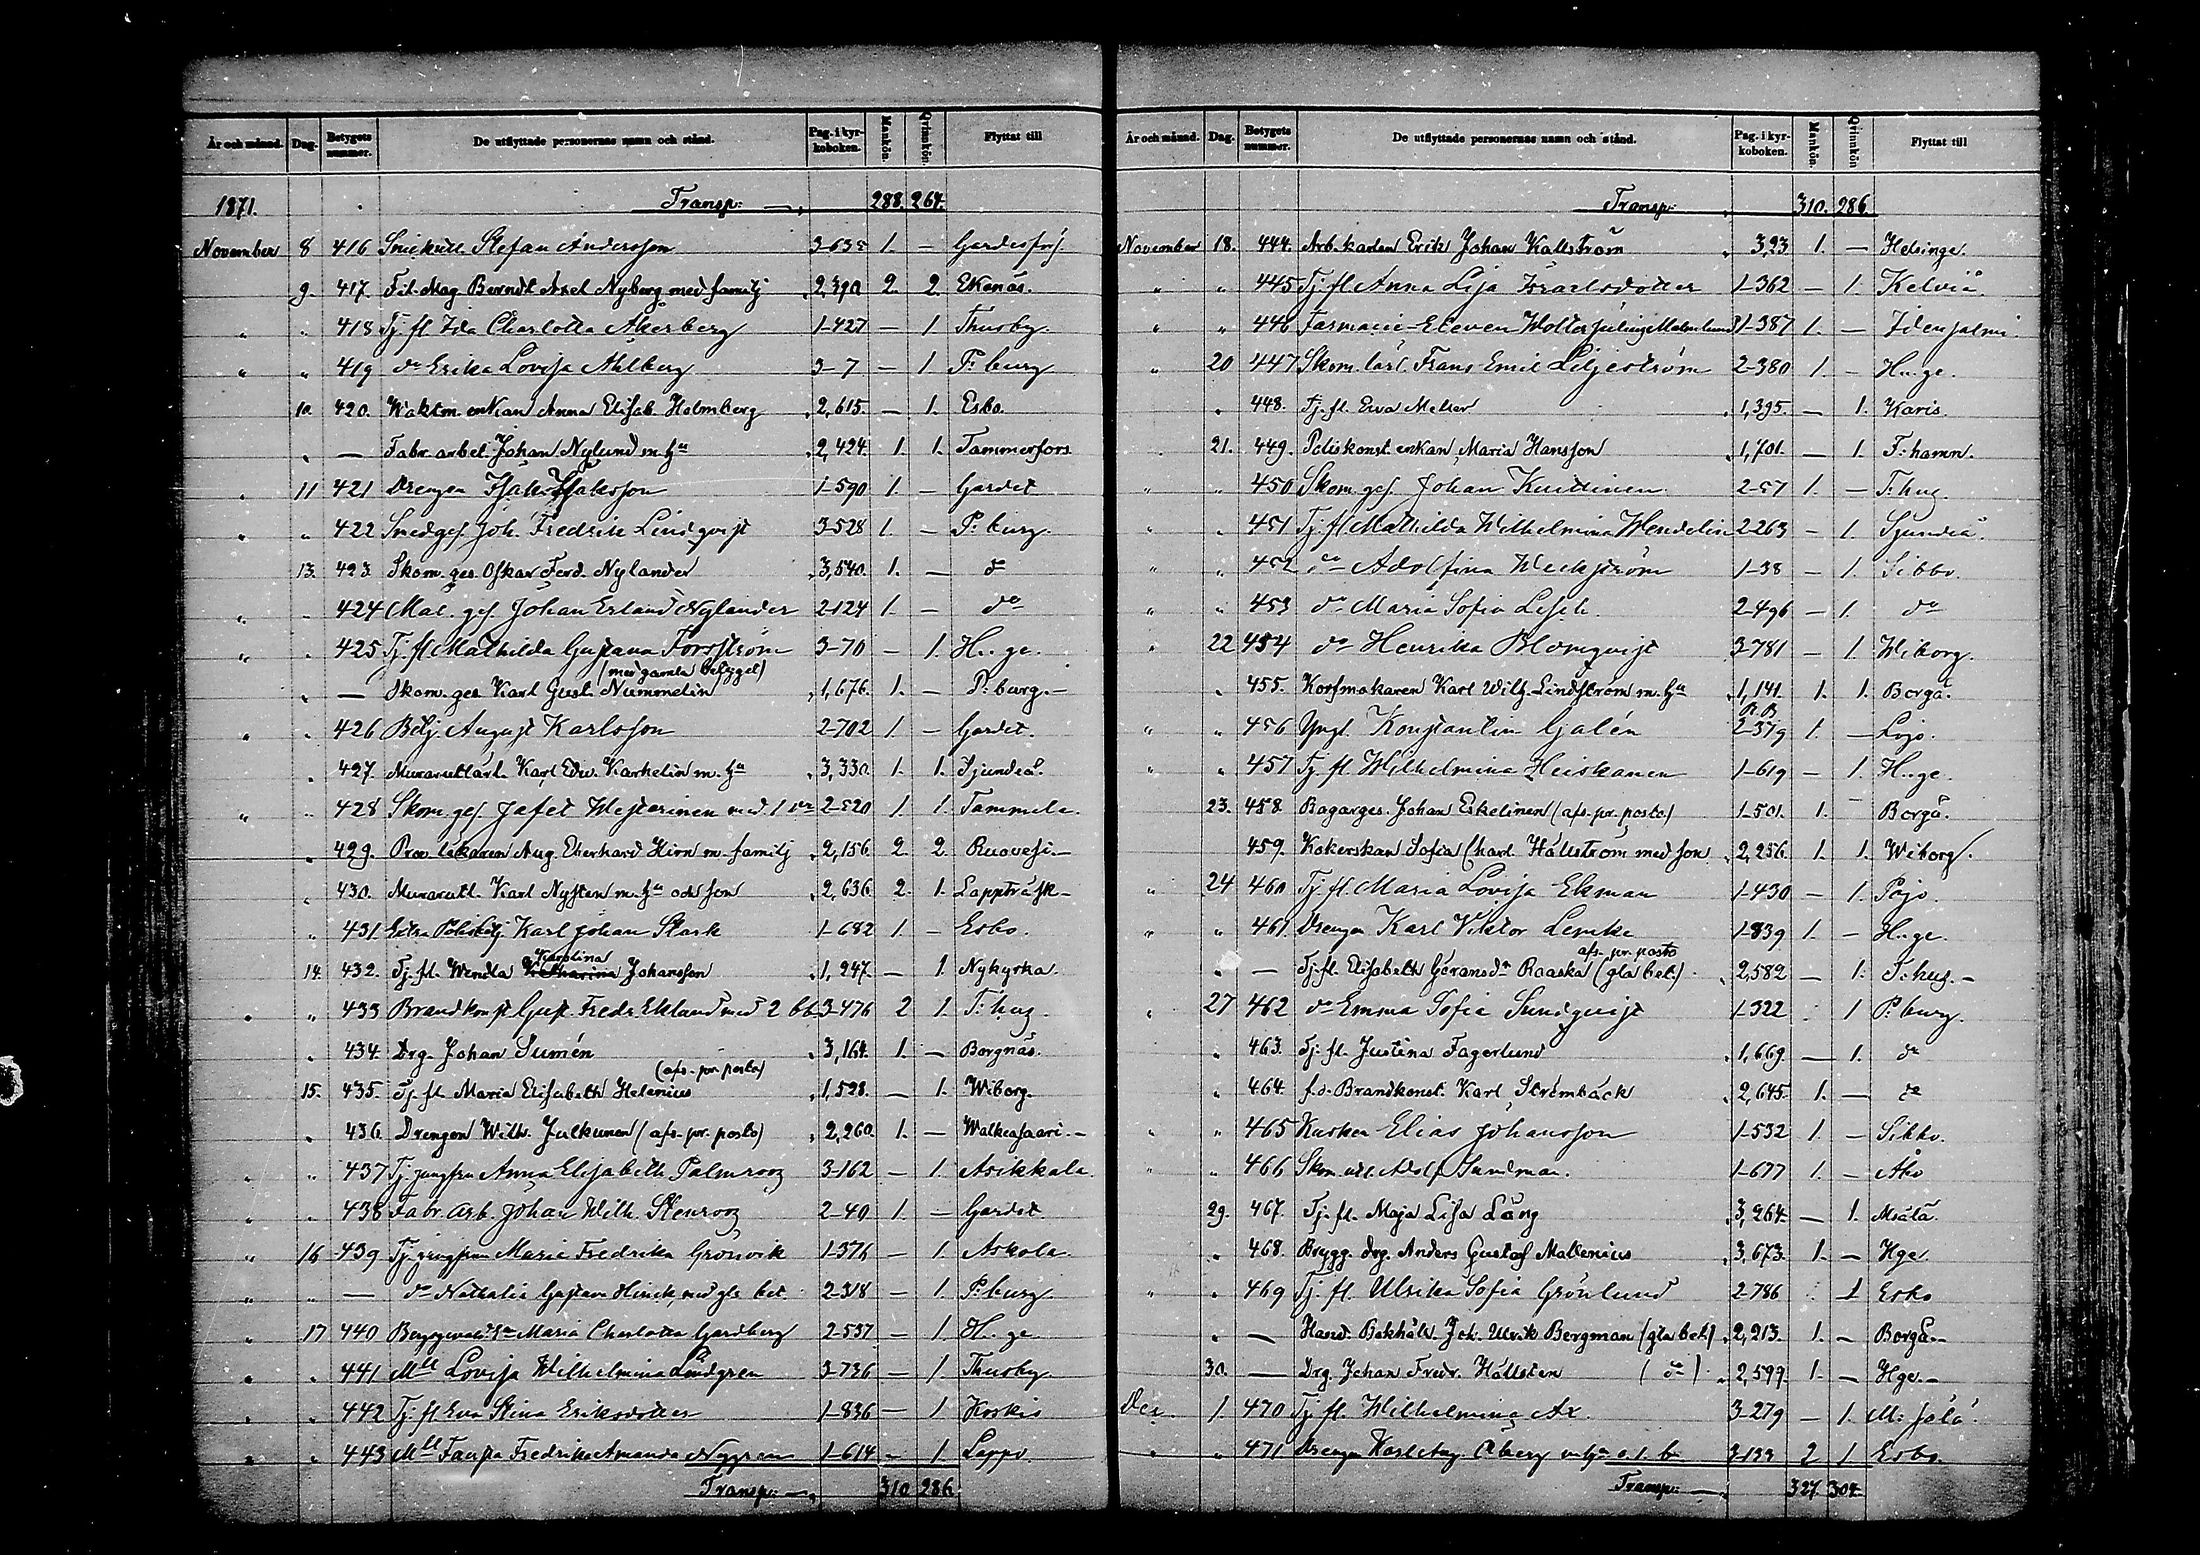 År och månad. Dag. Betygets nummer. De utflyttade personernas namn och stånd. Pag. i kyrkoboken. Mankön. Qvinnkön. Flyttat till
1871. Transp: 288. 264.
November 8 416 Snick.utl. Stefan Andersson 3-635 1. —
9. 417. Fil. Mag. Berndt Axel Nyberg med familj 2,390 2. 2. Ekenäs.
" " 418 Tj. fl. Ida Charlotta Åkerberg 1-427 — 1 Thusby.
" " 419 do Erika Lovisa Ahlberg 3-7 — 1 P:burg
10. 420. Waktm. enkan Anna Elisab. Holmberg 2,615. — 1. Esbo.
" — Fabr. arbet. Johan Nylund m. hu 2,424. 1. 1. Tammerfors
" 11 421 Drengen Isak Isaksson 1-590 1. — Gardet
" " 422 Smedges. Joh. Fredrik Lindqvist 3-528 1. — P:burg.
13. 423. Skom. ges. Oskar Ferd. Nylander 3,540. 1. — do
" " 424 Mal. ges. Johan Erland Nylander 2-124 1. — do
" " 425 Tj. fl. Mathilda Gustava Forsström 3-70 — 1. H..ge.
" — Skom. ges. Karl Gust. Nummelin (med gamla betyget) 1,676. 1. — P:burg.—
" " 426 Betj. August Karlsson 2-702 1. — Gardet.
" 427. Murarutlärl. Karl Edw. Karhelin m. hu 3,330. 1. 1. Sjundeå.
" " 428 Skom. ges. Jafet Westerinen med 1 2-520 1. 1. Tammela.
" 429. Prov. läkaren Aug. Eberhard Hirn m. familj 2,156. 2. 2. Ruovesi.—
" 430. Murarutl. Karl Nysten m. hu och son 2,636. 2. 1. Lappträsk—
" 431 Extra Polisbetj Karl Johan Stark 1-682 1. — Esbo.
14. 432. Tj. fl. Wendla Karolina Johansson 1,247. — 1. Nykyrka.
" " 433 Brandkonst. Gust. Fredr. Eklund med 2 bb 3-476 2 1. T:hug.
" 434. Drg. Johan Sumén 3,164. 1. — Borgnäs.
15. 435. Tj. fl. Maria Elisabeth Helenius (afs. pr. posto) 1,528. — 1. Wiborg.
" 436. Drengen Wilh. Julkunen (afs. pr. posto) 2,260. 1. — Walkeasaari.—
" " 437 Tj. jungfrun Anna Elisabeth Palmroos 3-162 — 1. Asikkala
" " 438 Fabr. arb. Johan Wilh. Stenroos 2-40 1. — Gardet.
" 16 439 Tj. jungfrun Maria Fredrika Grönvik 1-376 — 1. Askola.
" " — do Nathalia Gustava Hinck, med gla bet. 2-318 — 1. P:burg.
" 17 440 Maria Charlotta Gardberg 2-537 — 1. H..ge.
" " 441 Mll Lovisa Wilhelmina Lindgren 3-736 — 1. Thusby.
" " 442 Tj. fl. Eva Stina Eriksdotter 1-836 — 1 Koskis
" " 443 Mll Fredrika Amanda Nygren 1-614 — 1 Lappo.
Transp: 310 286.
År och månad. Dag. Betygets nummer. De utflyttade personernas namn och stånd. Pag. i kyrkoboken. Mankön. Qvinnkön Flyttat till
Transp: 310. 286.
November 18. 444. Arb. karlen Erik Johan Kallström 3,93 1. — Helsinge.
" " 445 Tj. fl. Anna Lisa Israelsdotter 1-362 — 1. Kelviå.
" " 446 Farmacie-Eleven Wolter Julius Malmlund 1-387 1. — Idensalmi
" 20 447 Skom. lärl. Frans Emil Liljeström 2-380 1. — H..ge.
" 448. Tj. fl. Ewa Meller 1,395. — 1. Karis.
21. 449. Poliskonst. enkan Maria Hansson 1,701. — 1. F:hamn.
" " 450 Skom. ges. Johan Kuittinen 2-57 1. — T:hug.
" " 451 Tj. fl. Mathilda Wilhelmina Wendelin 2-263 — 1. Sjundeå.
" " 452 do Adolfina Weckström 1-38 — 1. Sibbo.
" " 453 do Maria Sofia Lesch. 2-496 — 1. do
" 22 454 do Henrika Blomqvist 3-781 — 1. Wiborg.
" 455. Korfmakaren Karl Wilh. Lindström m. hu 1,141. 1. 1. Borgå.
" " 456 Yngl. Konstantin Galén R.B 2-379 1. — Lojo.
" " 457 Tj. fl. Wilhelmina Heiskanen 1-619 — 1. H..ge.
23. 458. Bagarges. Johan Eskelinen (afs. pr. posto) 1-501. 1. Borgå.
459. Kokerskan Sofia Charl. Hällström med son 2,256. 1. 1. Wiborg.
" 24 460 Tj. fl. Maria Lovisa Ekman 1-430 — 1. Pojo.
" " 461 Drengen Karl Viktor Lemke 1-839 1. — H..ge.
" — Tj. fl. Elisabeth Göransdr Raaska (gla bet.) afs. pr. posto 2,582 — 1. T:hus.—
" 27 462 do Emma Sofia Sundqvist 1-322 1 P:burg.
" 463. Tj. fl. Justina Fagerlund 1,669. — 1. do
" 464. f.d. Brandkonst. Karl Strömbäck 2,645. 1. — do
" " 465 Kusken Elias Johansson 1-532 1. — Sibbo.
" " 466 Skom. utl. Adolf Sundman. 1-677 1. — Åbo
29. 467. Tj. fl. Maja Lisa Lång 3,264. — 1. Msälä.
" 468. Brygg. drg. Anders Gustaf Mallenius 3,673. 1. — Hge.
" " 469 Tj. fl. Ulrika Sofia Grönlund 2-786 1 Esbo
" — Hand. Bokhåll. Joh. Ulrik Bergman (gla bet.) 2,213. 1. — Borgå.—
30. — Drg. Johan Fredr. Hällsten (do) 2,599. 1. — Hge.—
Dec. 1. 470 Tj. fl. Wilhelmina Ax. 3-279 — 1. M:sälä.
" " 471 Drengen Karl Aug. Åberg m. hu o. 1. b. 3-133 2 1 Esbo
Transp: 327. 304.